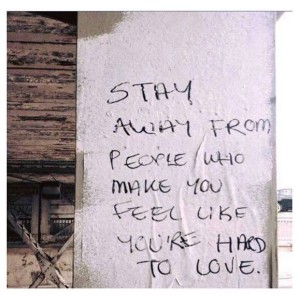 STAY
AWAY FROM
PEOPLE WHO
MAKE YOU
FEEL LIKE
YOU'RE HARD
TO LOVE.